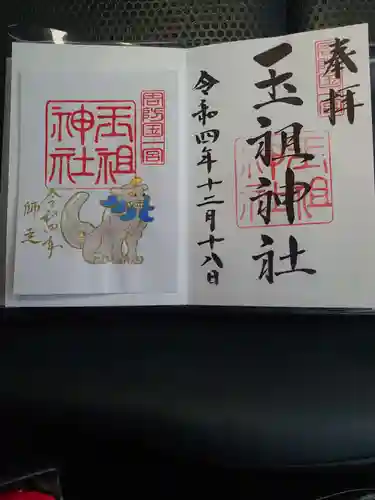 奉拝
周防国一宮
玉祖神社
玉祖神社
令和四年十二月十八日
周防国一宮
玉祖神社
令和四年
師走